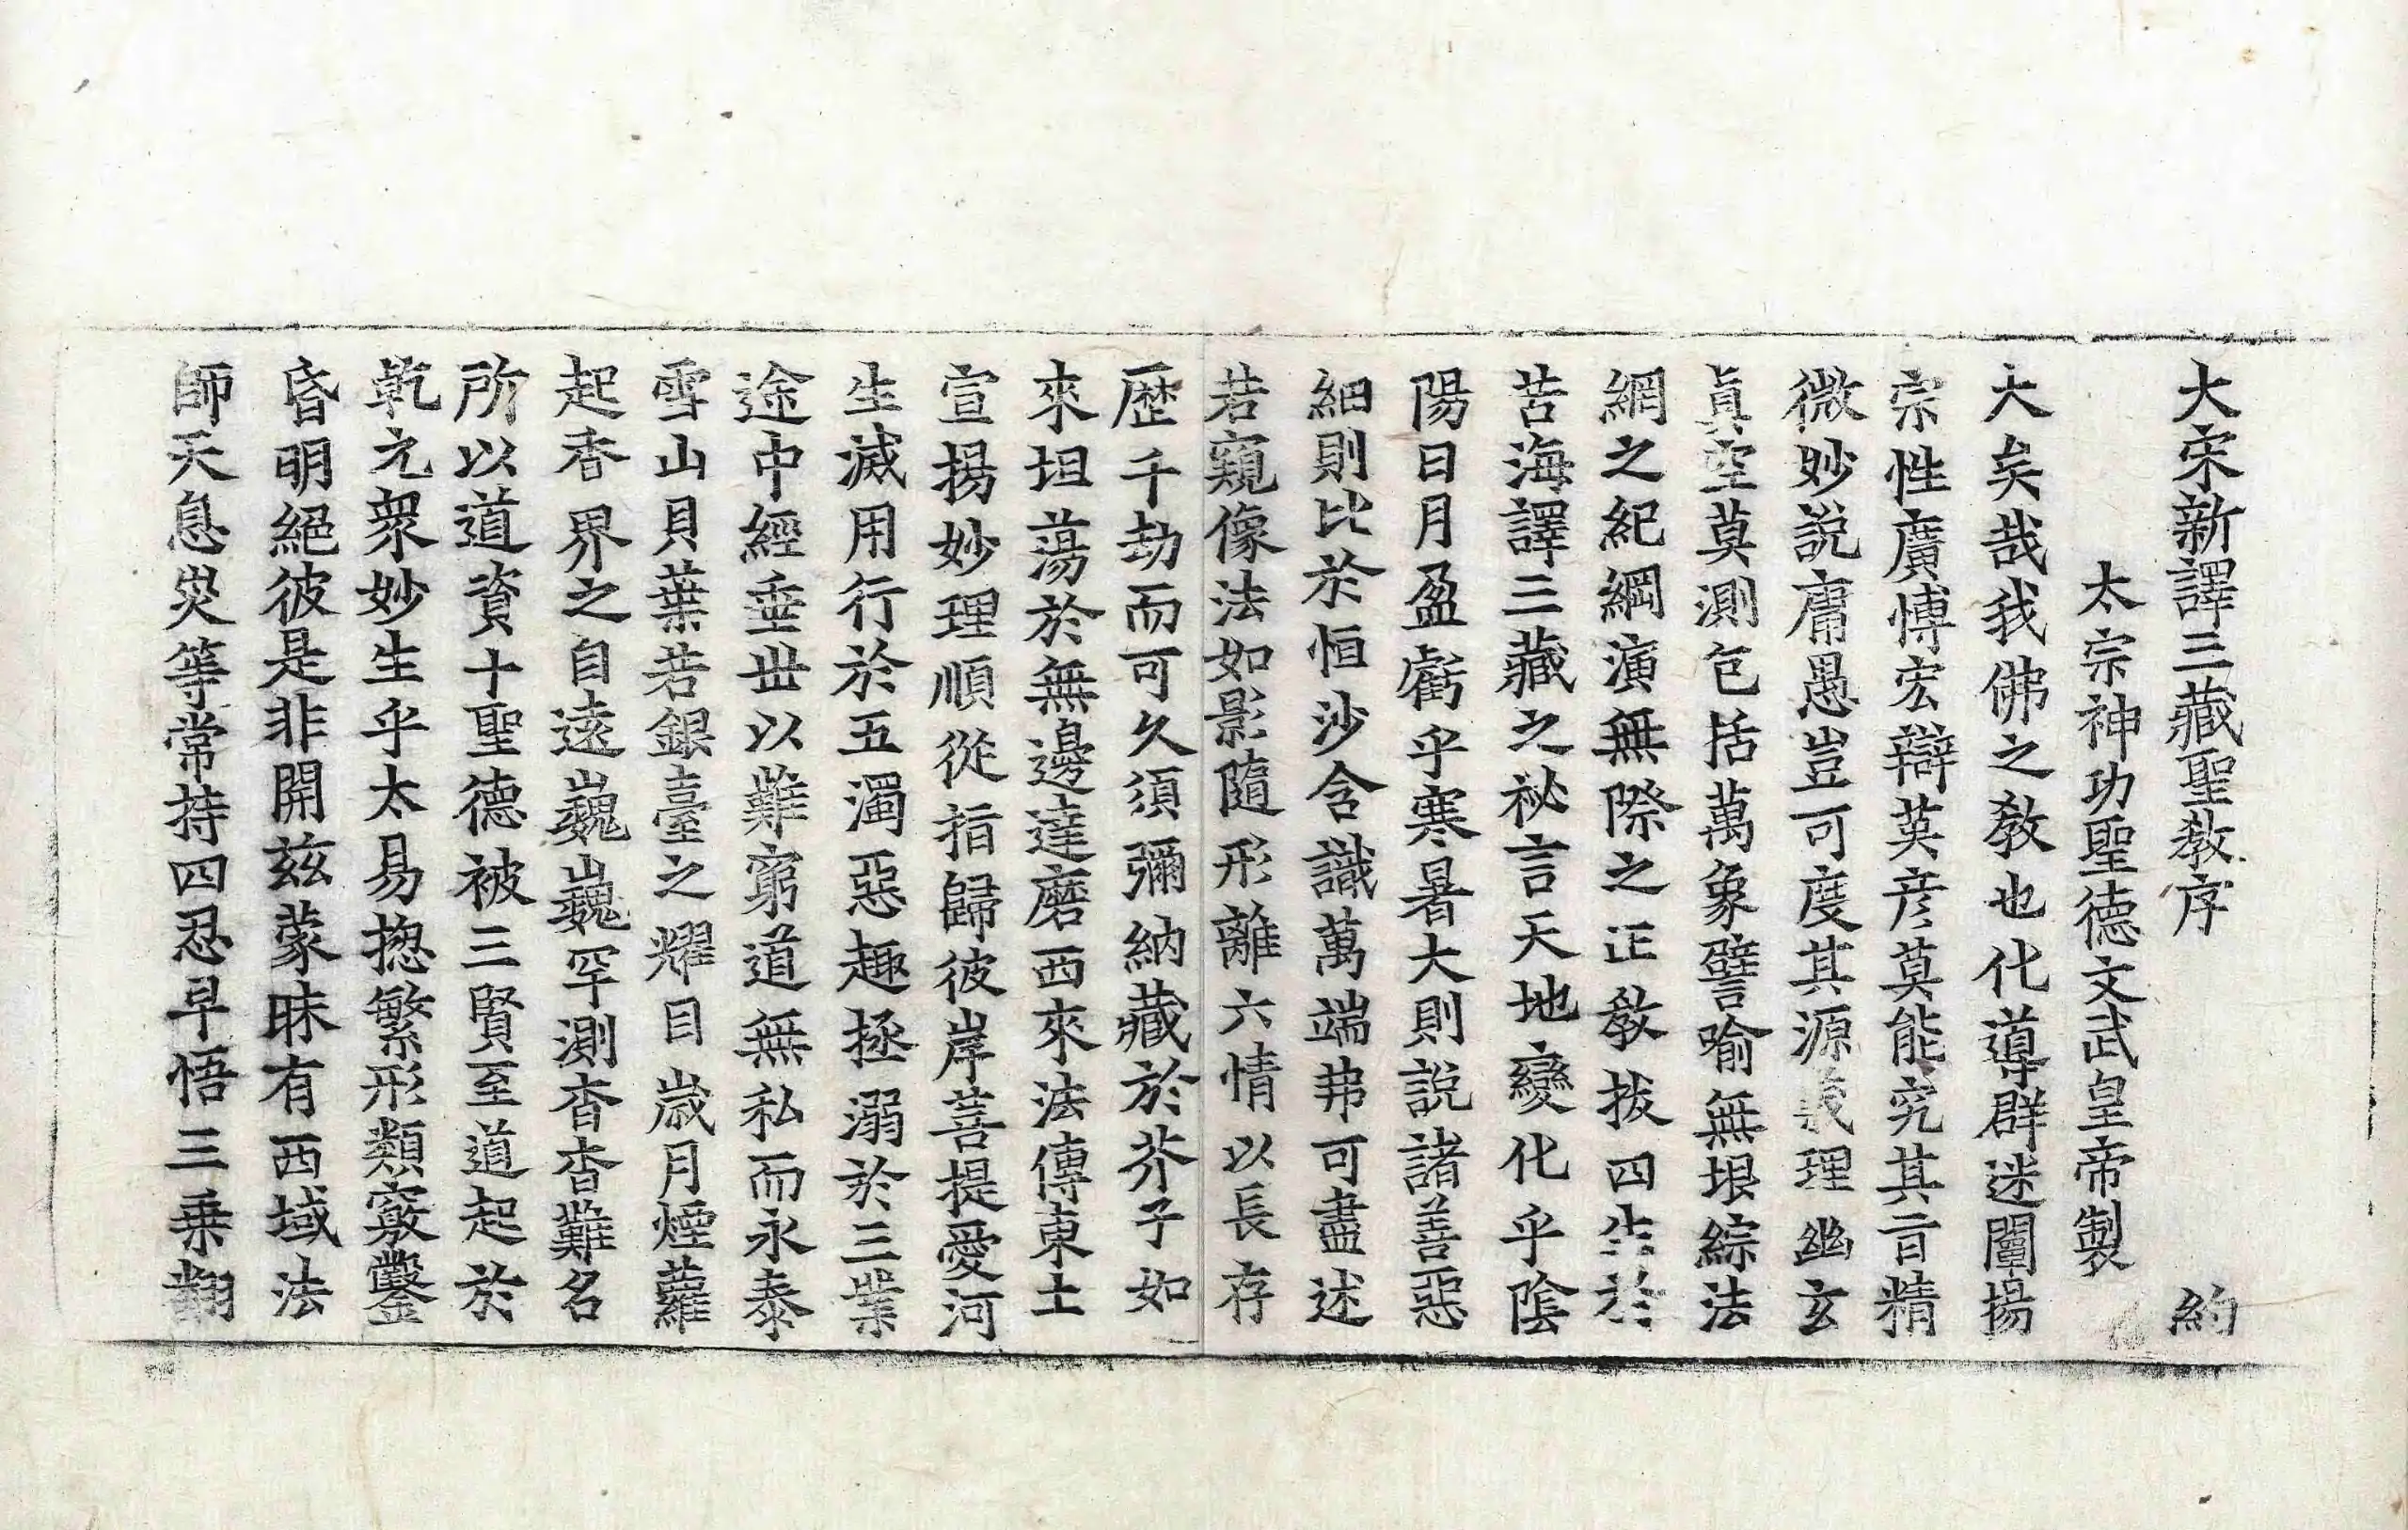 大宋新譯三藏聖教序 約
太宗神功聖德文武皇帝製
大矣哉我佛之教也化導群迷闡揚
宗性廣愽宏辯英彦莫能究其旨精
微妙說庸愚豈可度其源義理幽玄
真空莫測包括萬象譬喻無垠綜法
網之紀綱演無際之正教拔四生於
苦海譯三藏之祕言天地變化乎陰
陽日月盈虧乎寒暑大則說諸善惡
細則比於恒沙含識萬端弗可盡述
若窺像法如影隨形離六情以長存
歷千劫而可久須彌納藏於芥子如
來坦蕩於無邊達磨西來法傳東土
宣揚妙理順從指歸彼岸菩提愛河
生滅用行於五濁惡趣拯溺於三業
途中經垂世以難窮道無私而永泰
雪山貝葉若銀臺之耀目歲月煙蘿
起香界之自遠巍巍罕測杳杳難名
所以道資十聖德被三賢至道起於
乾元衆妙生乎太易揔繁形類竅鑿
昏明絕彼是非開茲蒙昧有西域法
師天息災等常持四忍早悟三乗翻